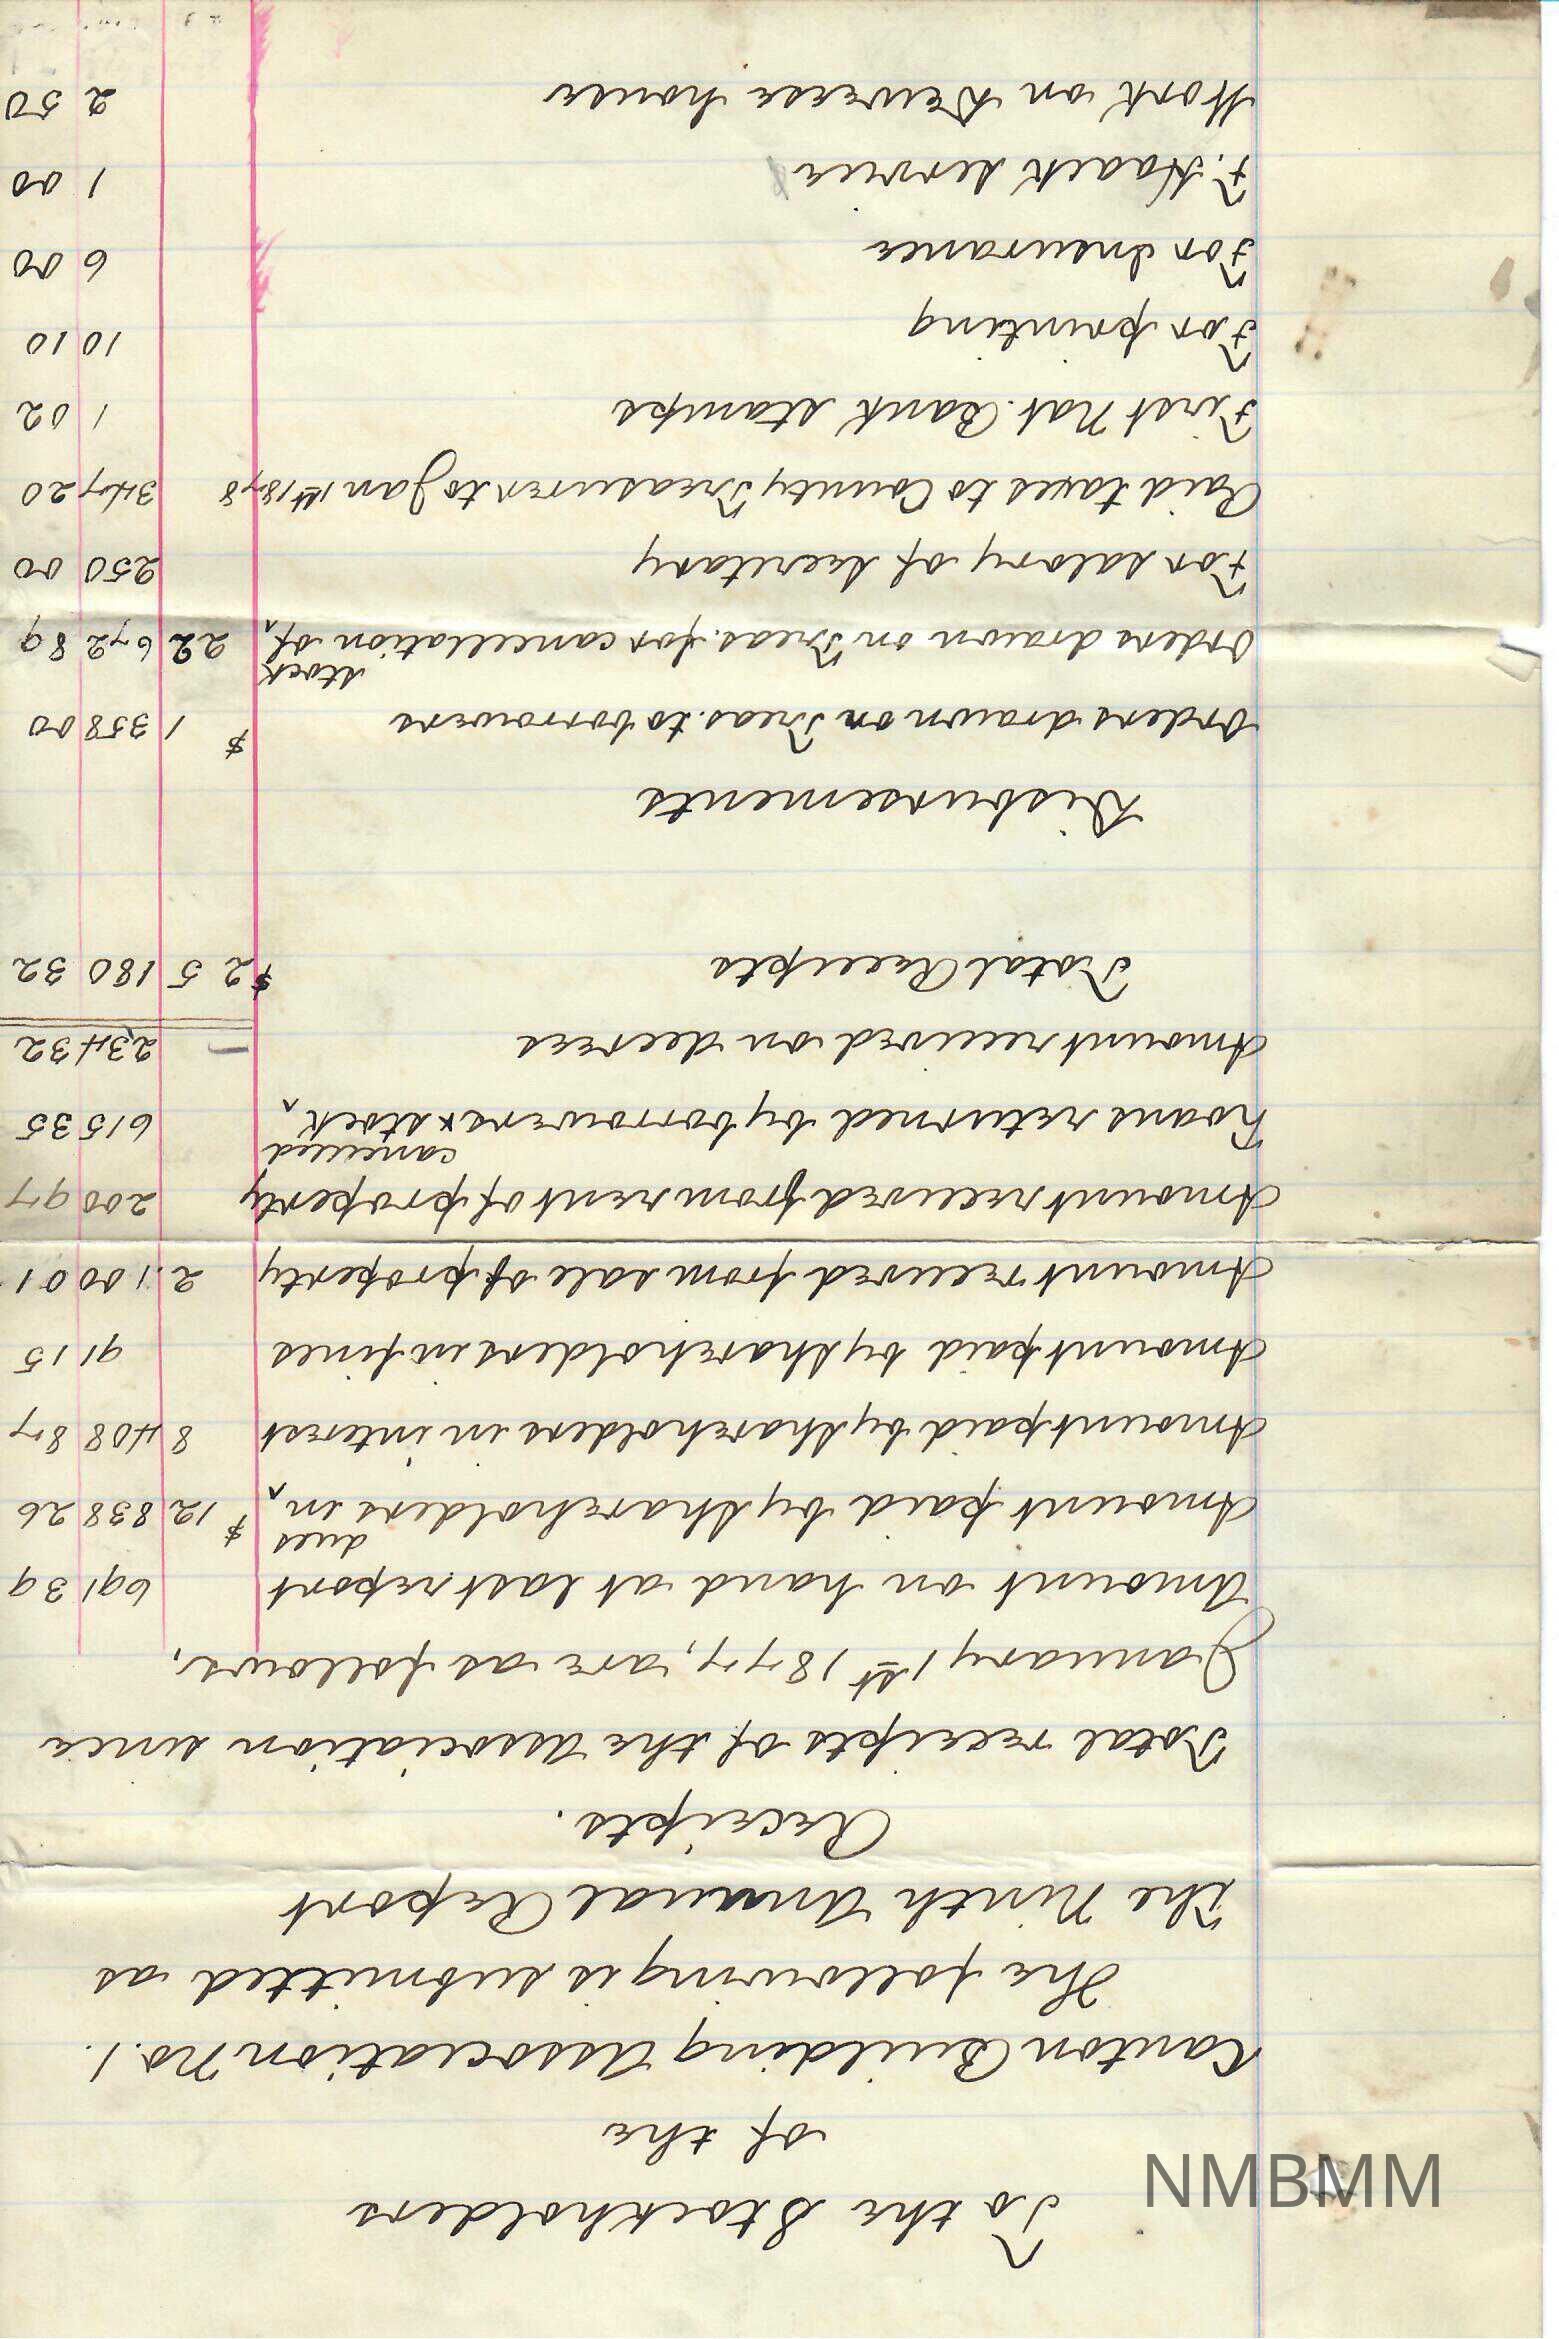 To the Stockholders
of the
Canton Building Association No. 1.
The following is submitted as
The Ninth Annual Report
Receipts.
Total receipts of the Association since
January 1st 1877, are as follows,
Amount on hand at last report 691 39
Amount paid by shareholders in ^ dues $ 12 838 26
Amount paid by shareholders in interest 8 408 87
Amount paid by shareholders in fines 91 15
Amount received from sale of property 2.100 01
Amount received from rent of property 200 97
Loans returned by borrowers & stock ^ cancelled 615 35
Amount received on decrees 234 32
Total Receipts $25 180 32
Disbursements
Orders drawn on Treas. to borrowers $ 1 358 00
Orders drawn on Treas. for cancellation of ^ stock 22 672 89
For salary of Secretary 250 00
Paid taxes to County Treasurer to Jan 1st 1878 347 20
First Nat. Bank stamps 1 02
For printing 10 10
For Insurance 6 00
F. Haack service 1 00
Work on Deweese house 2 50
NMBMM